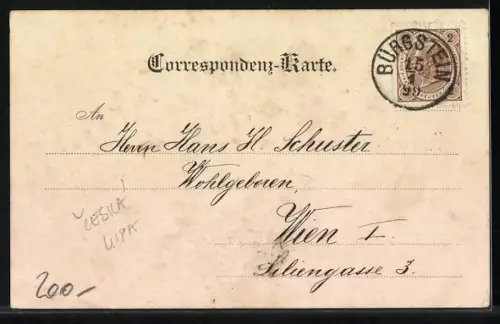 Correspondenz-Karte.
2
BÜRGSTEIN
15
1
99
An
Herrn Hans H. Schuster
Wohlgeboren,
Wien I.
Liliengasse 3.
ČESKÁ
LIPA
200-